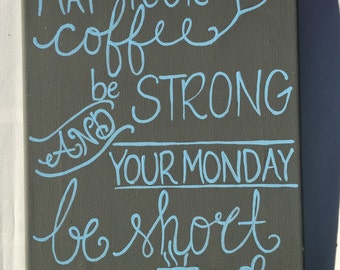 MAY YOUR
coffee
be STRONG
AND
YOUR MONDAY
be short